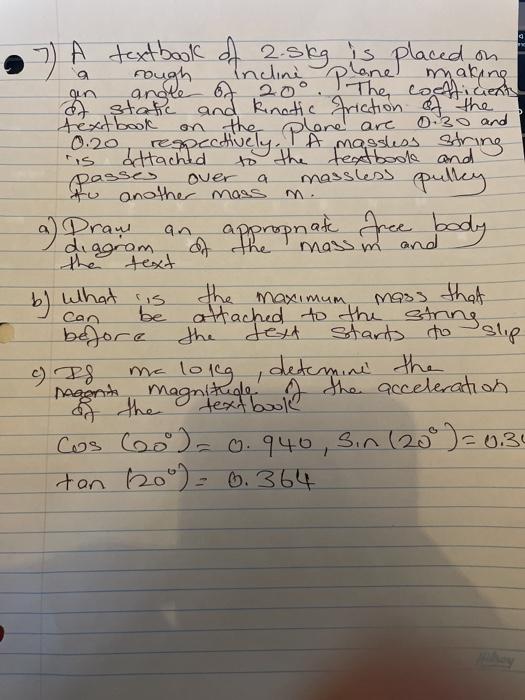 7) A textbook of 2.5kg is placed on
a rough Inclini plane making
an angle of 20°. The coefficients
of static and kinetic friction of the
textbook on the plane are 0.30 and
0.20, respectively. A massless string
is attached to the textbook and
passes over a massless pulley
to another mass m.
a) Draw an appropriate free body
diagram of the mass m and
the text
b) What is the maximum mass that
can be attached to the string
before the text starts to slip
c) If m= 10kg, determine the
magnitude of the acceleration
of the textbook
Cos (20°) = 0.940, Sin (20°) = 0.34
tan (20°) = 0.364
Hilroy